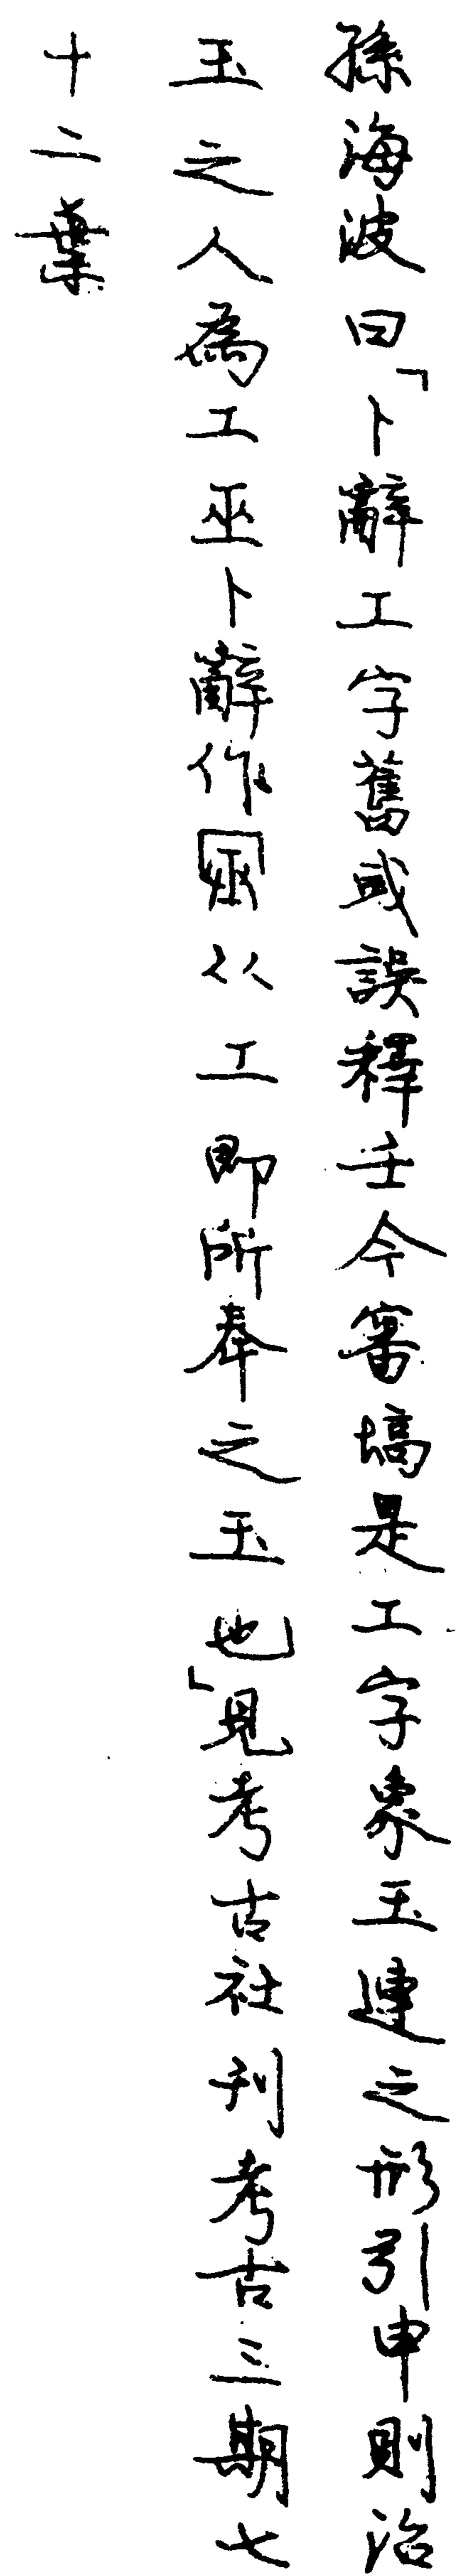 孫海波曰「卜辭工字舊或誤釋壬今審塙是工字象玉連之形引申則治
玉之人為工巫卜辭作从工即所奉之玉也」見考古社刊考古三期七
十二葉